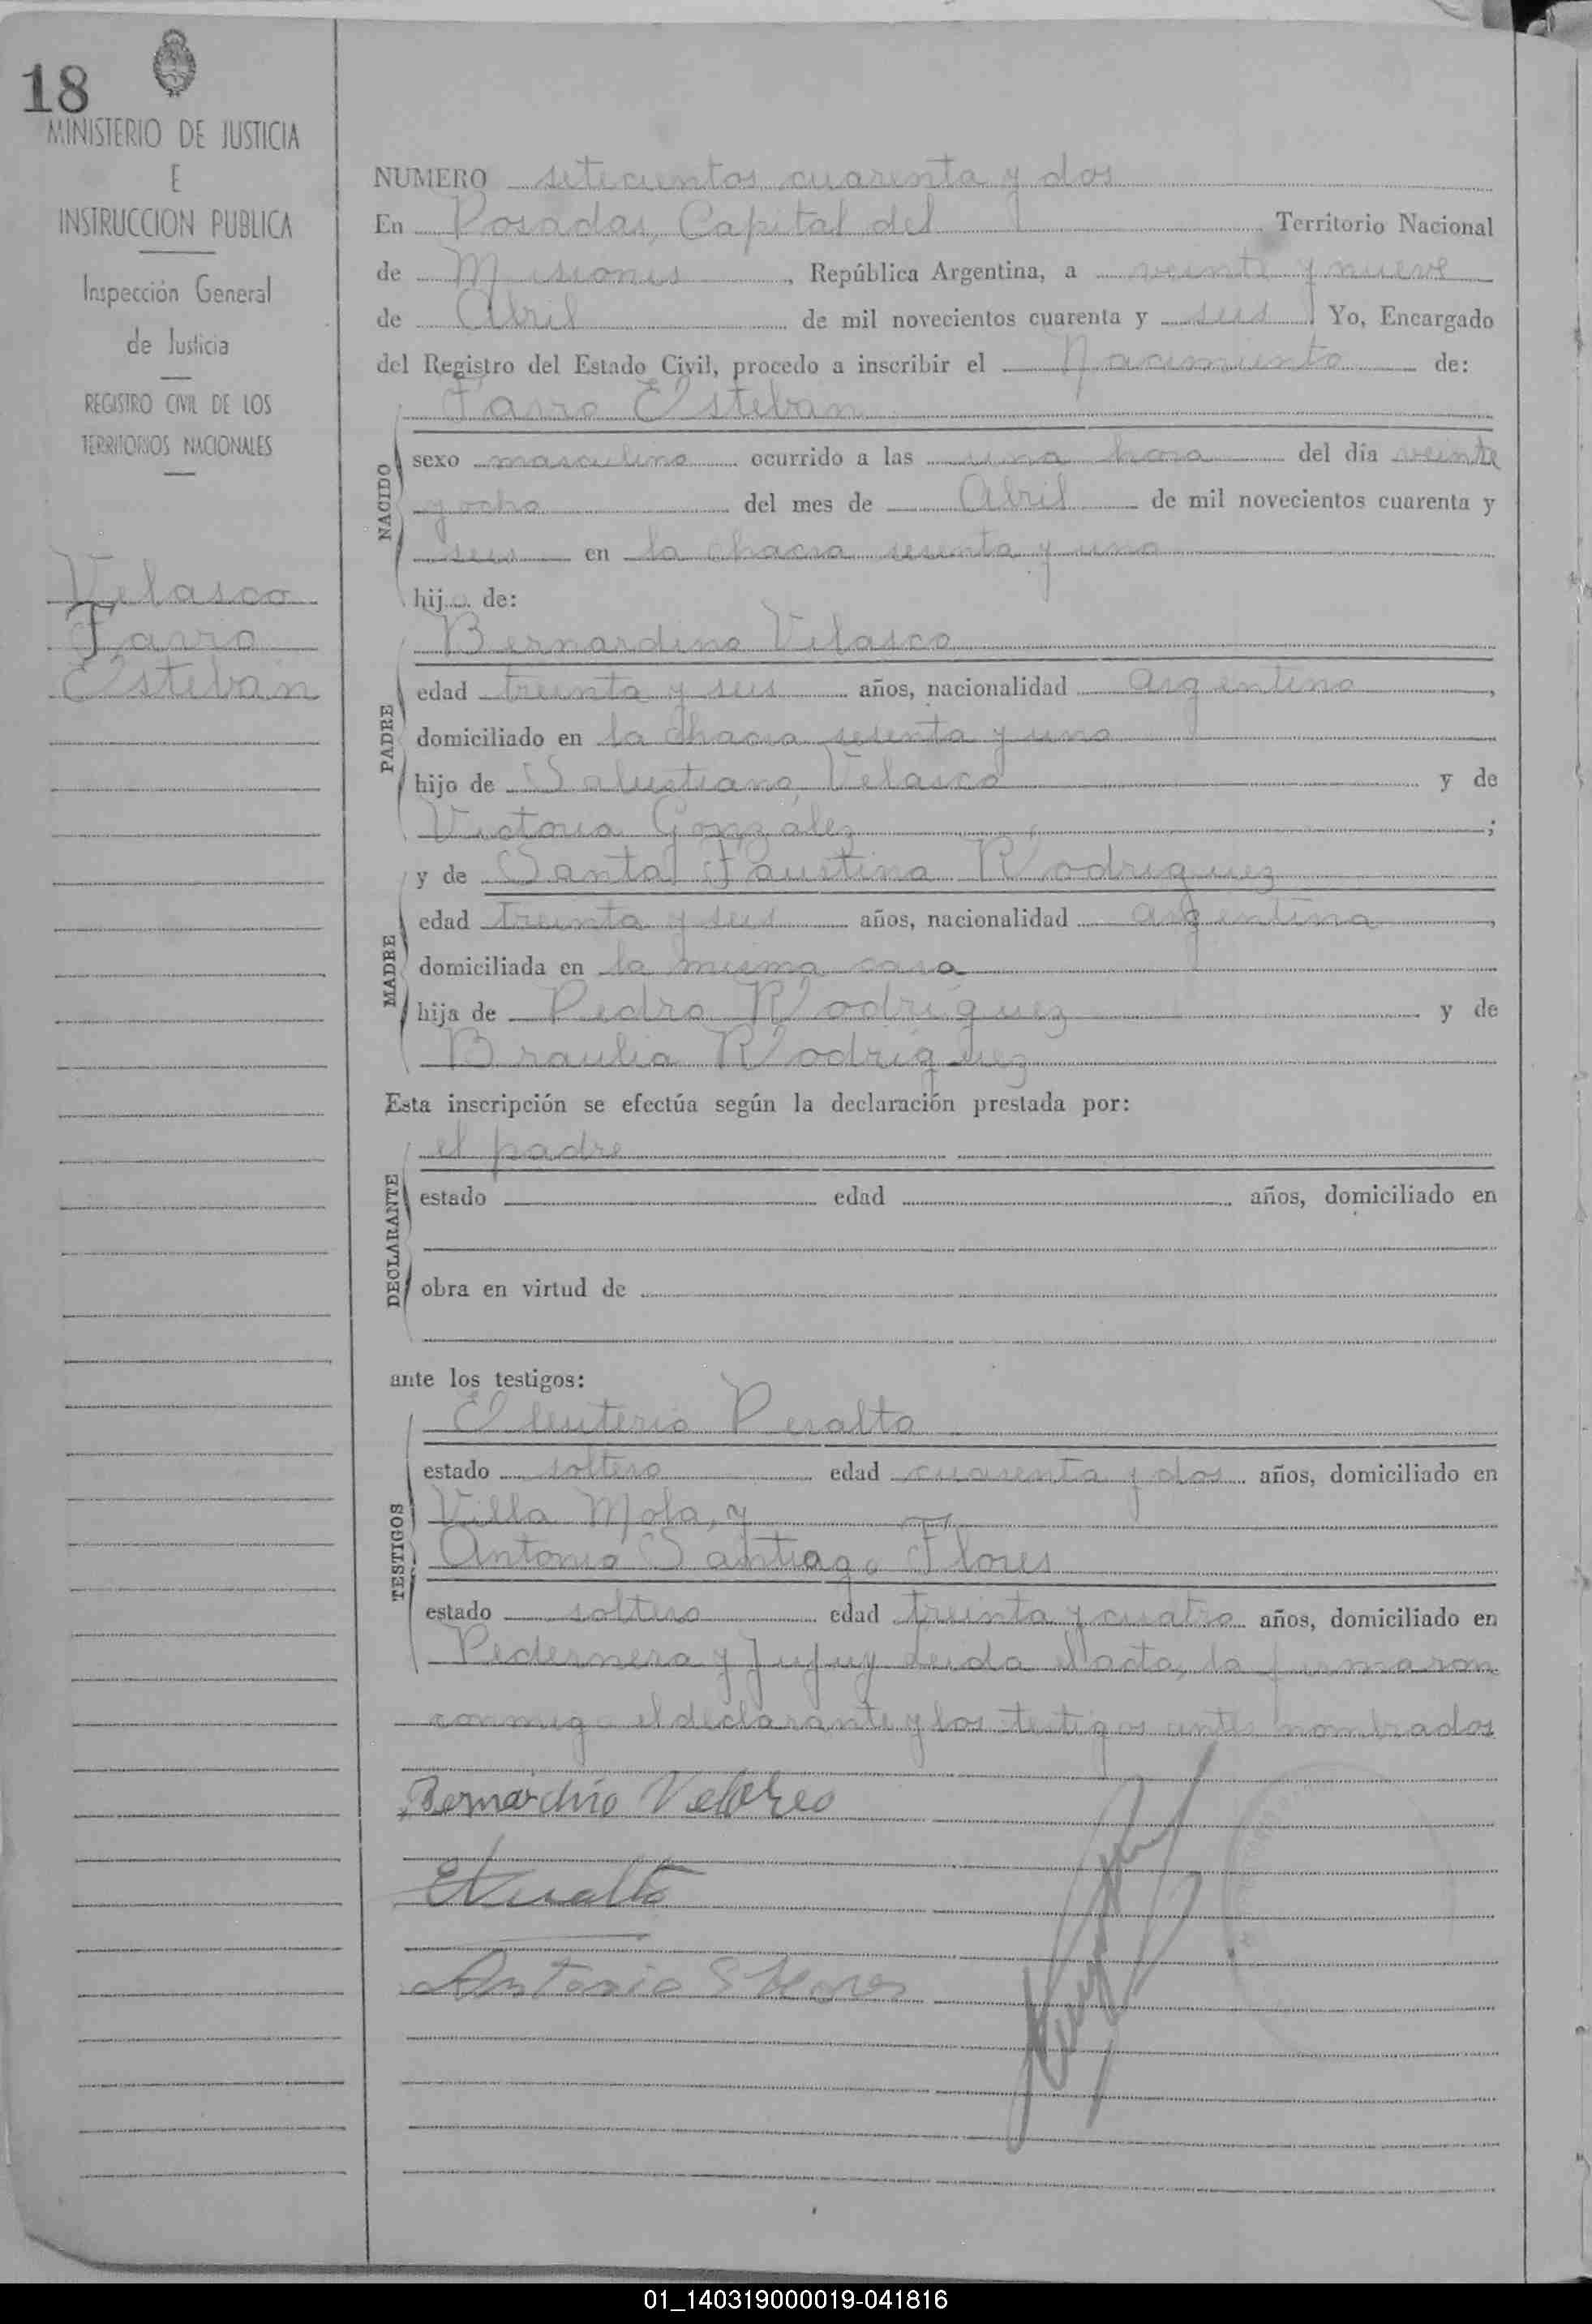 18
MINISTERIO DE JUSTICIA
E
INSTRUCCION PUBLICA
Inspección General
de Justicia
REGISTRO CIVIL DE LOS
TERRITORIOS NACIONALES
Velasco
Farro
Esteban
NUMERO setecientos cuarenta y dos
En Posadas, Capital del Territorio Nacional
de Misiones, República Argentina, a veinte y nueve
de Abril de mil novecientos cuarenta y seis Yo, Encargado
del Registro del Estado Civil, procedo a inscribir el Nacimiento de:
Farro Esteban
NACIDO
sexo masculino ocurrido a las una hora del día veinte
y ocho del mes de Abril de mil novecientos cuarenta y
seis en la chacra sesenta y uno
hijo de:
Bernardino Velasco
PADRE
edad treinta y seis años, nacionalidad argentino,
domiciliado en la chacra sesenta y uno
hijo de Salustiano Velasco y de
Victoria González;
y de Santa Faustina Rodriguez
MADRE
edad treinta y seis años, nacionalidad argentina,
domiciliada en la misma casa
hija de Pedro Rodríguez y de
Braulia Rodriguez
Esta inscripción se efectúa según la declaración prestada por:
el padre
DECLARANTE
estado edad años, domiciliado en
obra en virtud de
ante los testigos:
Eleuterio Peralta
TESTIGOS
estado soltero edad cuarenta y dos años, domiciliado en
Villa Mola, y
Antonio Santiago Flores
estado soltero edad treinta y cuatro años, domiciliado en
Pedernera y Jujuy Leida el acta, la firmaron
conmigo el declarante y los testigos antes nombrados
Bernardino Velasco
EPeralta
Antonio S Flores
01_140319000019-041816